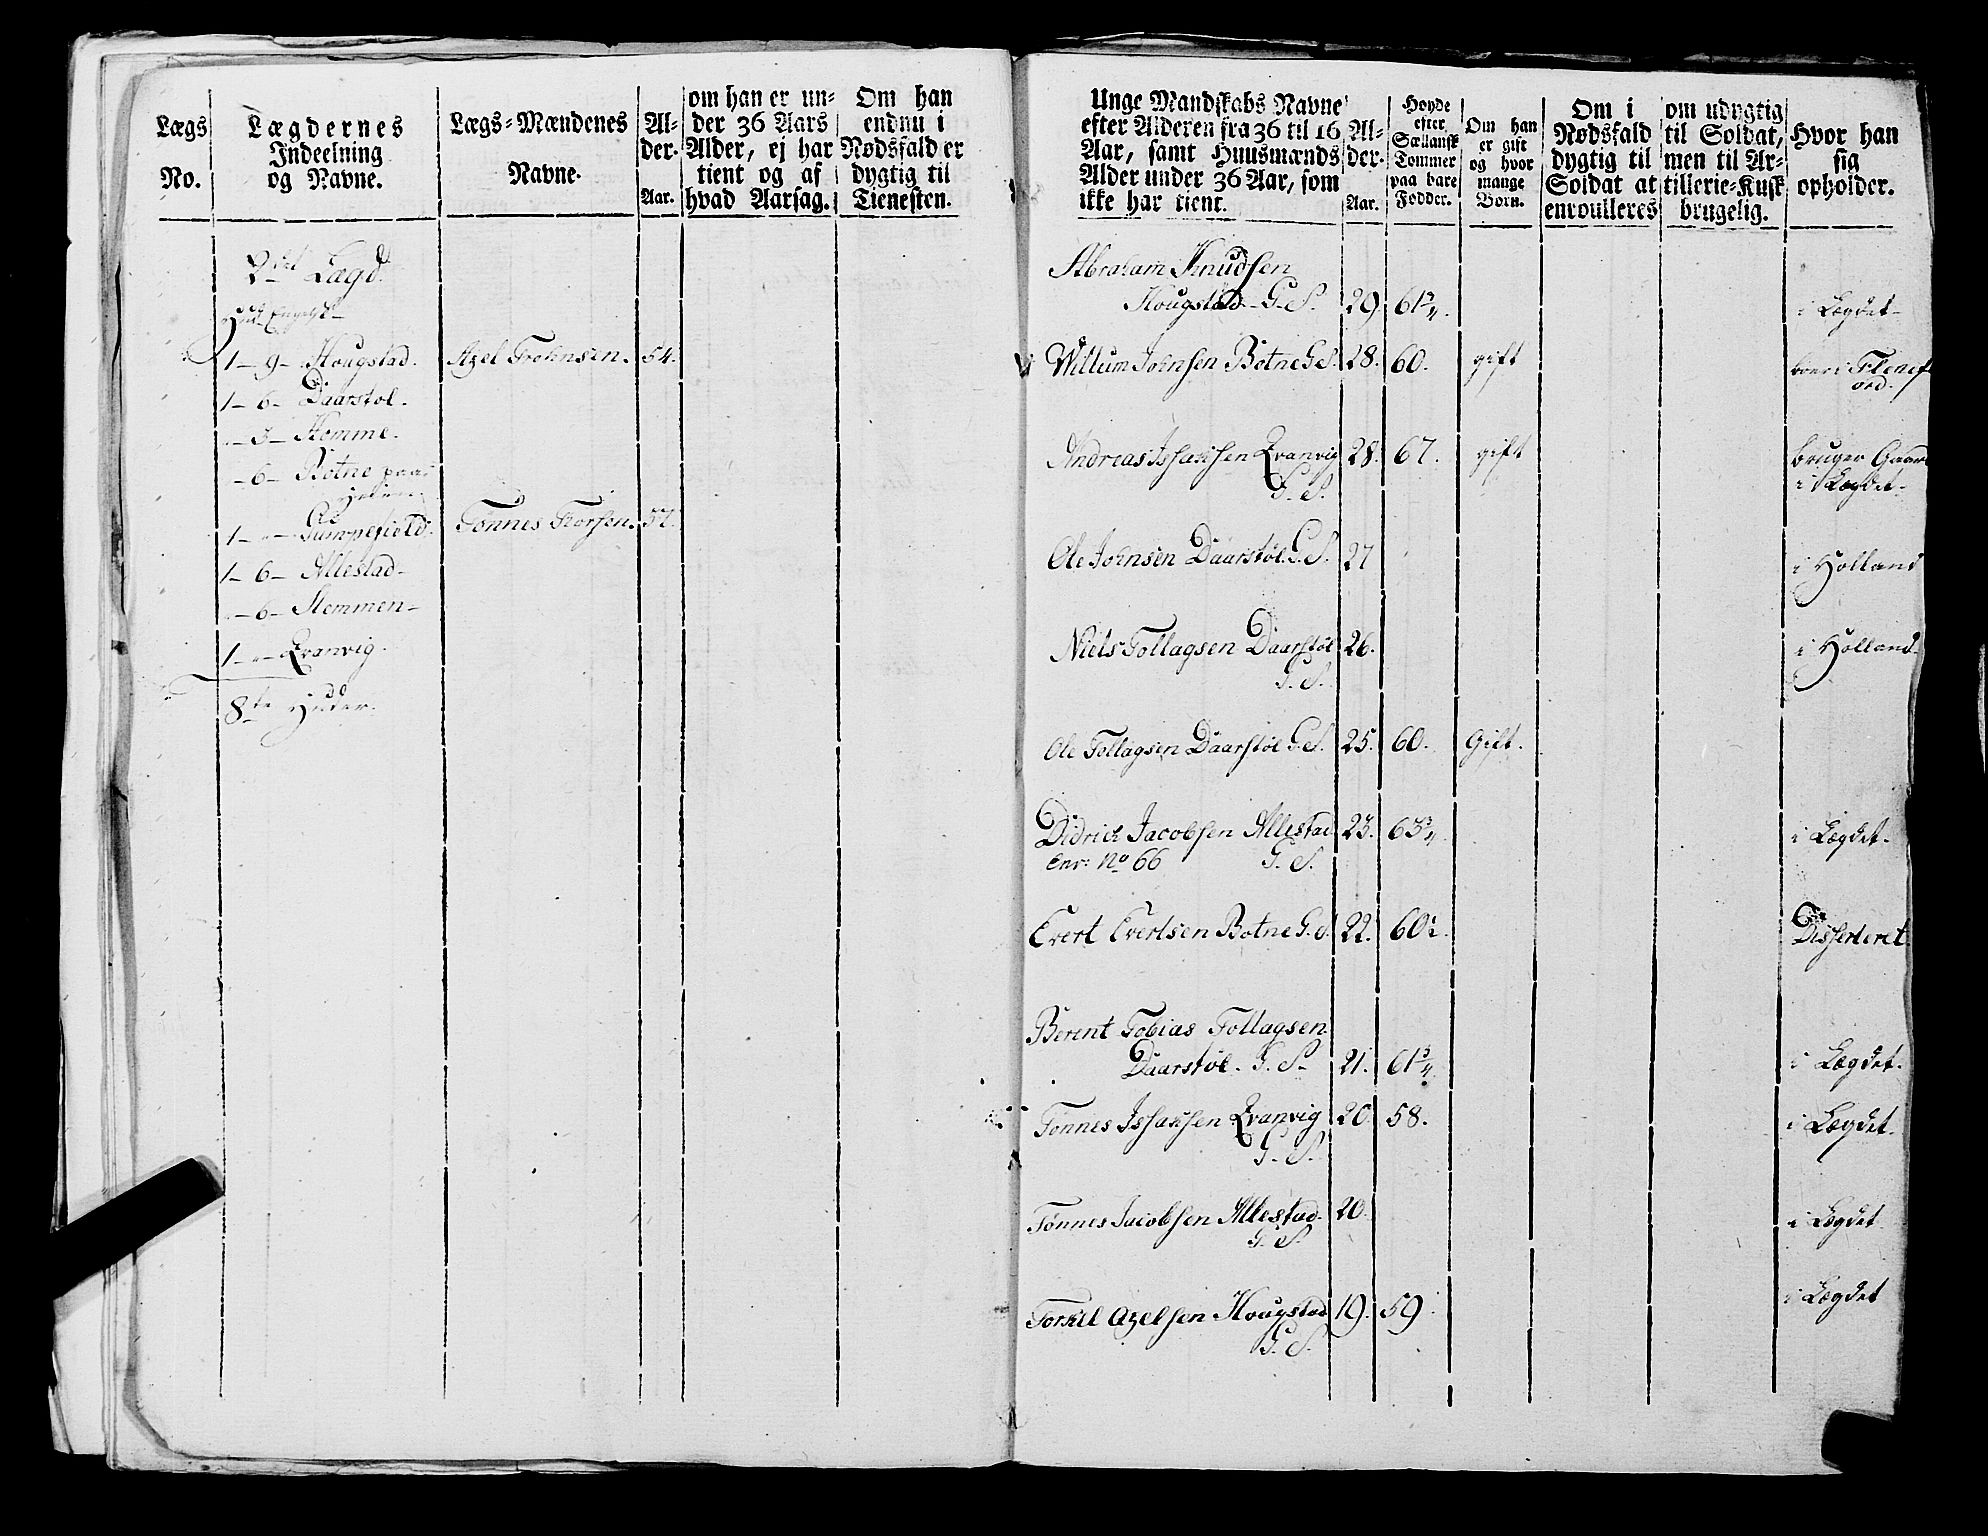 Lægs
No.
Lægdernes
Indeelning
og Navne.
Lægs-Mændenes
Navne.
Al-
der.
Aar.
om han er un-
der 36 Aars
Alder, ej har
tient og af
hvad Aarsag.
Om han
endnu i
Nødsfald er
dygtig til
Tienesten.
Lægd.
1 - 9 - Hougstad. Azel Trohnsen. 54.
1 - 6 - Daarstøl.
- 3 - Homme.
- 6 - Botne paa
1 - " - Tønnes Torsen. 57.
1 - 6 - Allestad
- 6 - Stemmen
1 - " - Qvanvig.
8te Huder.
Unge Mandskabs Navne
efter Alderen fra 36 til 16
Aar, samt Huusmænds
Alder under 36 Aar, som
ikke har tient.
Al-
der.
Aar.
Høyde
efter
Siællansk
Tommer
paa bare
Fødder.
Om han
er gift
og hvor
mange
Børn.
Om i
Nødsfald
dygtig til
Soldat at
enroulleres
om udygtig
til Soldat,
men til Ar-
tillerie-Kusk
brugelig.
Hvor han
sig
opholder.
Abraham Knudsen
Hougstad G. S. 29. 61 3/4. i Lægdet
Willum Johnsen Botne G. S. 28. 60. gift boer i
Andreas Issachsen Qvanvig 28. 67. gift bruger Gaard
G. S. i Lægdet
Ole Johnsen Daarstøl G. S. 27 i Holland
Niels Tollagsen Daarstøl 26. i Holland
G. S.
Ole Tollagsen Daarstøl G. S. 25. 60. Gift.
Didrich Jacobsen Allestad 23. 63 3/4 i Lægdet.
Enr: No 66 G. S.
Evert Evertsen Botne G. S. 22. 60 1/2. Disserteret
Berent Tobias Tollagsen
Daarstøl. G. S. 21. 61 3/4. i Lægdet.
Tønnes Issachsen Qvanvig 20. 58. i Lægdet
G. S.
Tønnes Jacobsen Allestad. 20. i Lægdet
G. S.
Torkel Azelsen Hougstad 19. 59. i Lægdet
G. S.